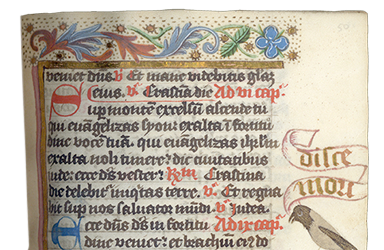 veniet dn̄s. V̓. Et mane videbitis gl̄az
S eius. V̓. Crastīa die Ad vi cap̄.
up mōtē excelsū ascende tu
qui euāgelizas syon: exalta ī forti
dine vocē tuā. qui euāgelizas ih̄rl̄m
exalta noli timere: dic ciuitatibus
iude: ecce dn̄s vester: Crastina
die delebit̄ iniq̄tas terre. V̓. Et regna
bit sup nos saluator mūdi. V̓.
Ecce dn̄s dn̄s in fortitu Ad ix cap̄.
dine veniet: et brachiū ei9 do
disce
mori
50